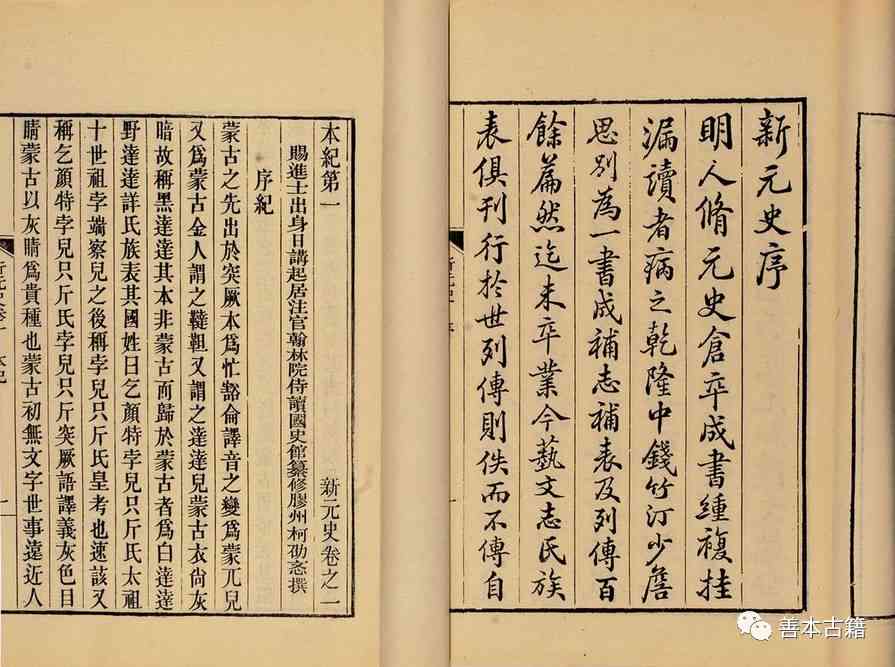 新元史序
明人脩元史倉卒成書緟複挂
漏讀者病之乾隆中錢竹汀少詹
思別為一書成補志補表及列傳百
餘篇然迄未卒業今藝文志氏族
表俱刊行於世列傳則佚而不傳自
本紀第一 新元史卷之一
賜進士出身日講起居注官翰林院侍讀國史館纂修膠州柯劭忞撰
序紀
蒙古之先出於突厥本爲忙豁侖譯音之變爲蒙兀兒
又爲蒙古金人謂之韃靼又謂之達達兒蒙古衣尚灰
暗故稱黑達達其本非蒙古而歸於蒙古者爲白達達
野達達詳氏族表其國姓曰乞顏特孛兒只斤氏太祖
十世祖孛端察兒之後稱孛兒只斤氏皇考也速該又
稱乞顏特孛兒只斤氏孛兒只斤突厥語譯義灰色目
睛蒙古以灰睛爲貴種也蒙古初無文字世事遠近人
善本古籍